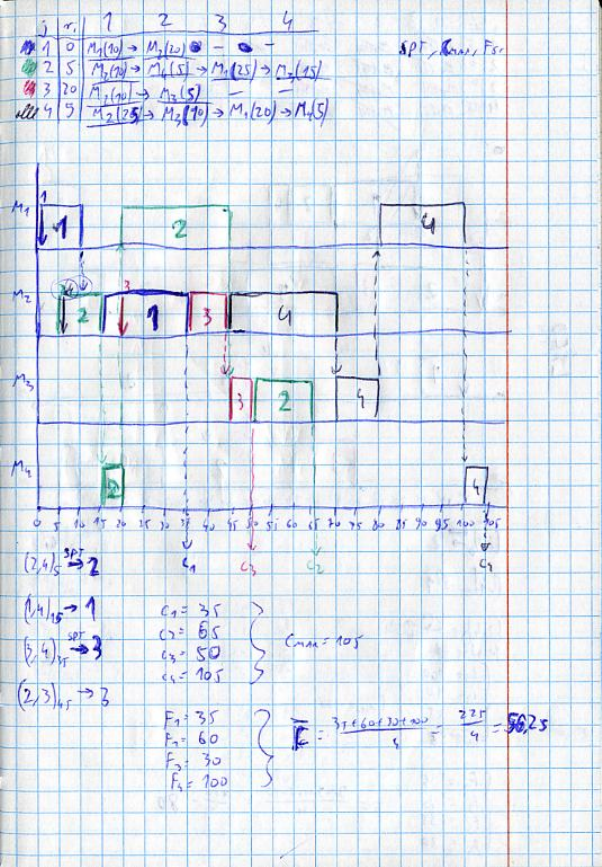 j r_j 1 2 3 4
1 0 M₁(10) → M₂(20) - -
SPT, Cmax, Fsr
2 5 M₂(10) → M₄(5) → M₁(25) → M₃(15)
3 20 M₂(10) → M₃(5) - -
4 5 M₂(25) → M₃(10) → M₁(20) → M₄(5)
1
M₁ 1 2 4
3
M₂ 2 1 3 4
M₃ 3 2 4
M₄ 2 4
0 5 10 15 20 30 35 40 45 50 55 60 65 70 75 80 85 90 95 100 105
C₁ C₃ C₂ C₄
(2,4)₅ SPT→ 2
(1,4)₁₅ → 1
(3,4)₃₅ SPT→ 3
(2,3)₄₅ → 3
C₁ = 35
C₂ = 65
C₃ = 50
C₄ = 105
Cmax = 105
F₁ = 35
F₂ = 60
F₃ = 30
F₄ = 100
F̅ = (35+60+30+100)/4 = 225/4 = 56,25